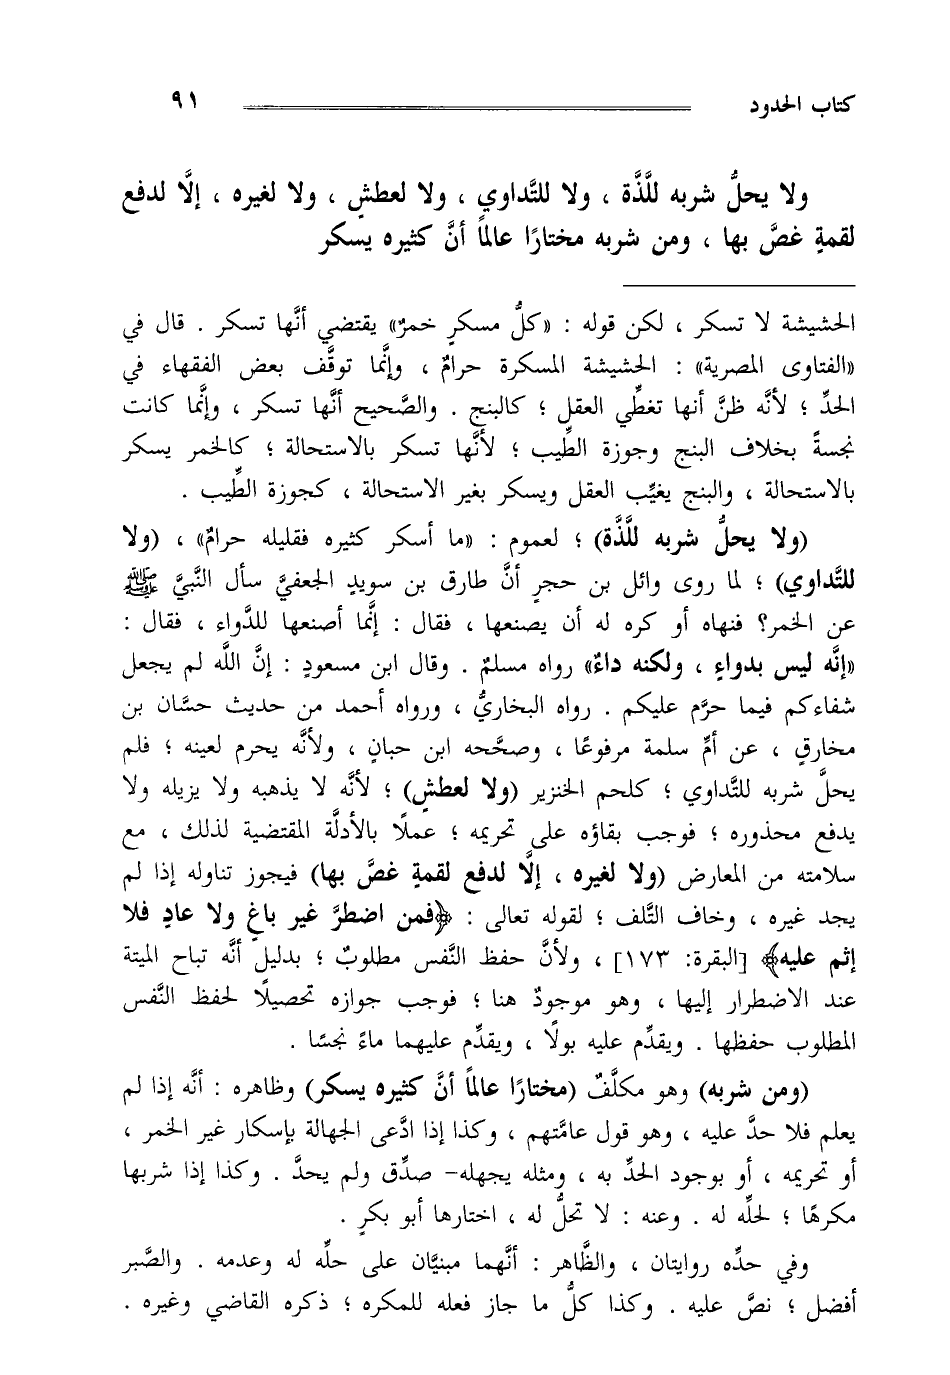 كتاب الحدود ٩١
ولا يحلُّ شربه للَّذَّة ، ولا للتَّداوي ، ولا لعطشٍ ، ولا لغيره ، إلَّا لدفع
لقمةٍ غصَّ بها ، ومن شربه مختارًا عالمًا أنَّ كثيره يسكر
الحشيشة لا تسكر ، لكن قوله : «كلُّ مسكرٍ خمرٌ» يقتضي أنَّها تسكر . قال في
«الفتاوى المصرية» : الحشيشة المسكرة حرامٌ ، وإنَّما توقَّف بعض الفقهاء في
الحدِّ ؛ لأنَّه ظنَّ أنها تغطِّي العقل ؛ كالبنج . والصَّحيح أنَّها تسكر ، وإنَّما كانت
نجسةً بخلاف البنج وجوزة الطِّيب ؛ لأنَّها تسكر بالاستحالة ؛ كالخمر يسكر
بالاستحالة ، والبنج يغيِّب العقل ويسكر بغير الاستحالة ، كجوزة الطِّيب .
(ولا يحلُّ شربه للَّذَّة) ؛ لعموم : «ما أسكر كثيره فقليله حرامٌ» ، (ولا
للتَّداوي) ؛ لما روى وائل بن حجرٍ أنَّ طارق بن سويدٍ الجعفيَّ سأل النَّبيَّ ﷺ
عن الخمر؟ فنهاه أو كره له أن يصنعها ، فقال : إنَّما أصنعها للدَّواء ، فقال :
«إنَّه ليس بدواءٍ ، ولكنه داءٌ» رواه مسلمٌ . وقال ابن مسعودٍ : إنَّ اللَّه لم يجعل
شفاءكم فيما حرَّم عليكم . رواه البخاريُّ ، ورواه أحمد من حديث حسَّان بن
مخارقٍ ، عن أمِّ سلمة مرفوعًا ، وصحَّحه ابن حبانٍ ، ولأنَّه يحرم لعينه ؛ فلم
يحلَّ شربه للتَّداوي ؛ كلحم الخنزير (ولا لعطشٍ) ؛ لأنَّه لا يذهبه ولا يزيله ولا
يدفع محذوره ؛ فوجب بقاؤه على تحريمه ؛ عملًا بالأدلَّة المقتضية لذلك ، مع
سلامته من المعارض (ولا لغيره ، إلَّا لدفع لقمةٍ غصَّ بها) فيجوز تناوله إذا لم
يجد غيره ، وخاف التَّلف ؛ لقوله تعالى : ﴿فمن اضطرَّ غير باغٍ ولا عادٍ فلا
إثم عليه﴾ [البقرة: ١٧٣] ، ولأنَّ حفظ النَّفس مطلوبٌ ؛ بدليل أنَّه تباح الميتة
عند الاضطرار إليها ، وهو موجودٌ هنا ؛ فوجب جوازه تحصيلًا لحفظ النَّفس
المطلوب حفظها . ويقدِّم عليه بولًا ، ويقدِّم عليهما ماءً نجسًا .
(ومن شربه) وهو مكلَّفٌ (مختارًا عالمًا أنَّ كثيره يسكر) وظاهره : أنَّه إذا لم
يعلم فلا حدَّ عليه ، وهو قول عامَّتهم ، وكذا إذا ادَّعى الجهالة بإسكار غير الخمر ،
أو تحريمه ، أو بوجود الحدِّ به ، ومثله يجهله- صدِّق ولم يحدَّ . وكذا إذا شربها
مكرهًا ؛ لحلِّه له . وعنه : لا تحلُّ له ، اختارها أبو بكرٍ .
وفي حدِّه روايتان ، والظَّاهر : أنَّهما مبنيَّان على حلِّه له وعدمه . والصَّبر
أفضل ؛ نصَّ عليه . وكذا كلُّ ما جاز فعله للمكره ؛ ذكره القاضي وغيره .